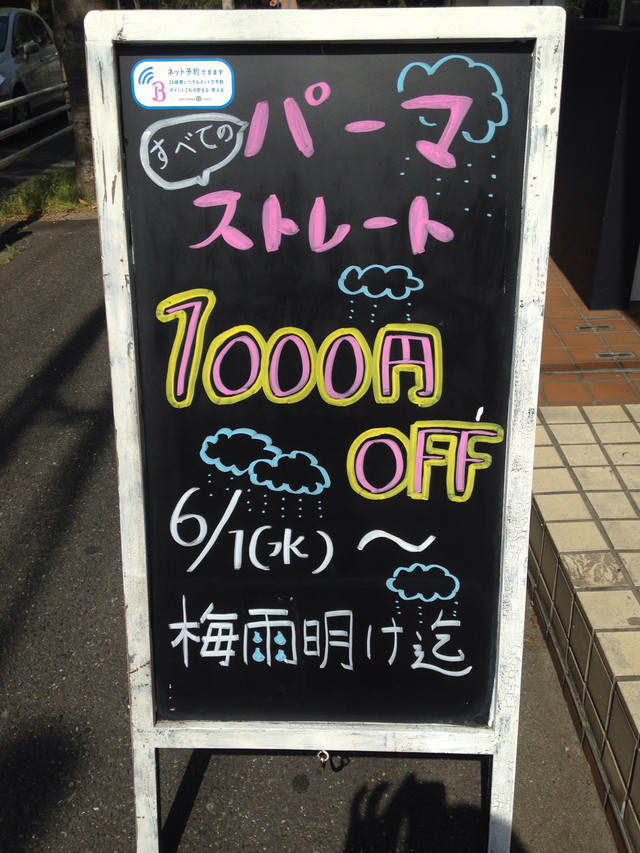 ネット予約できます
24時間いつでもネットで予約
ポイントこちが貯まる・使える
B
すべての
パーマ
ストレート
1000円
OFF
6/1(水)～
梅雨明け迄